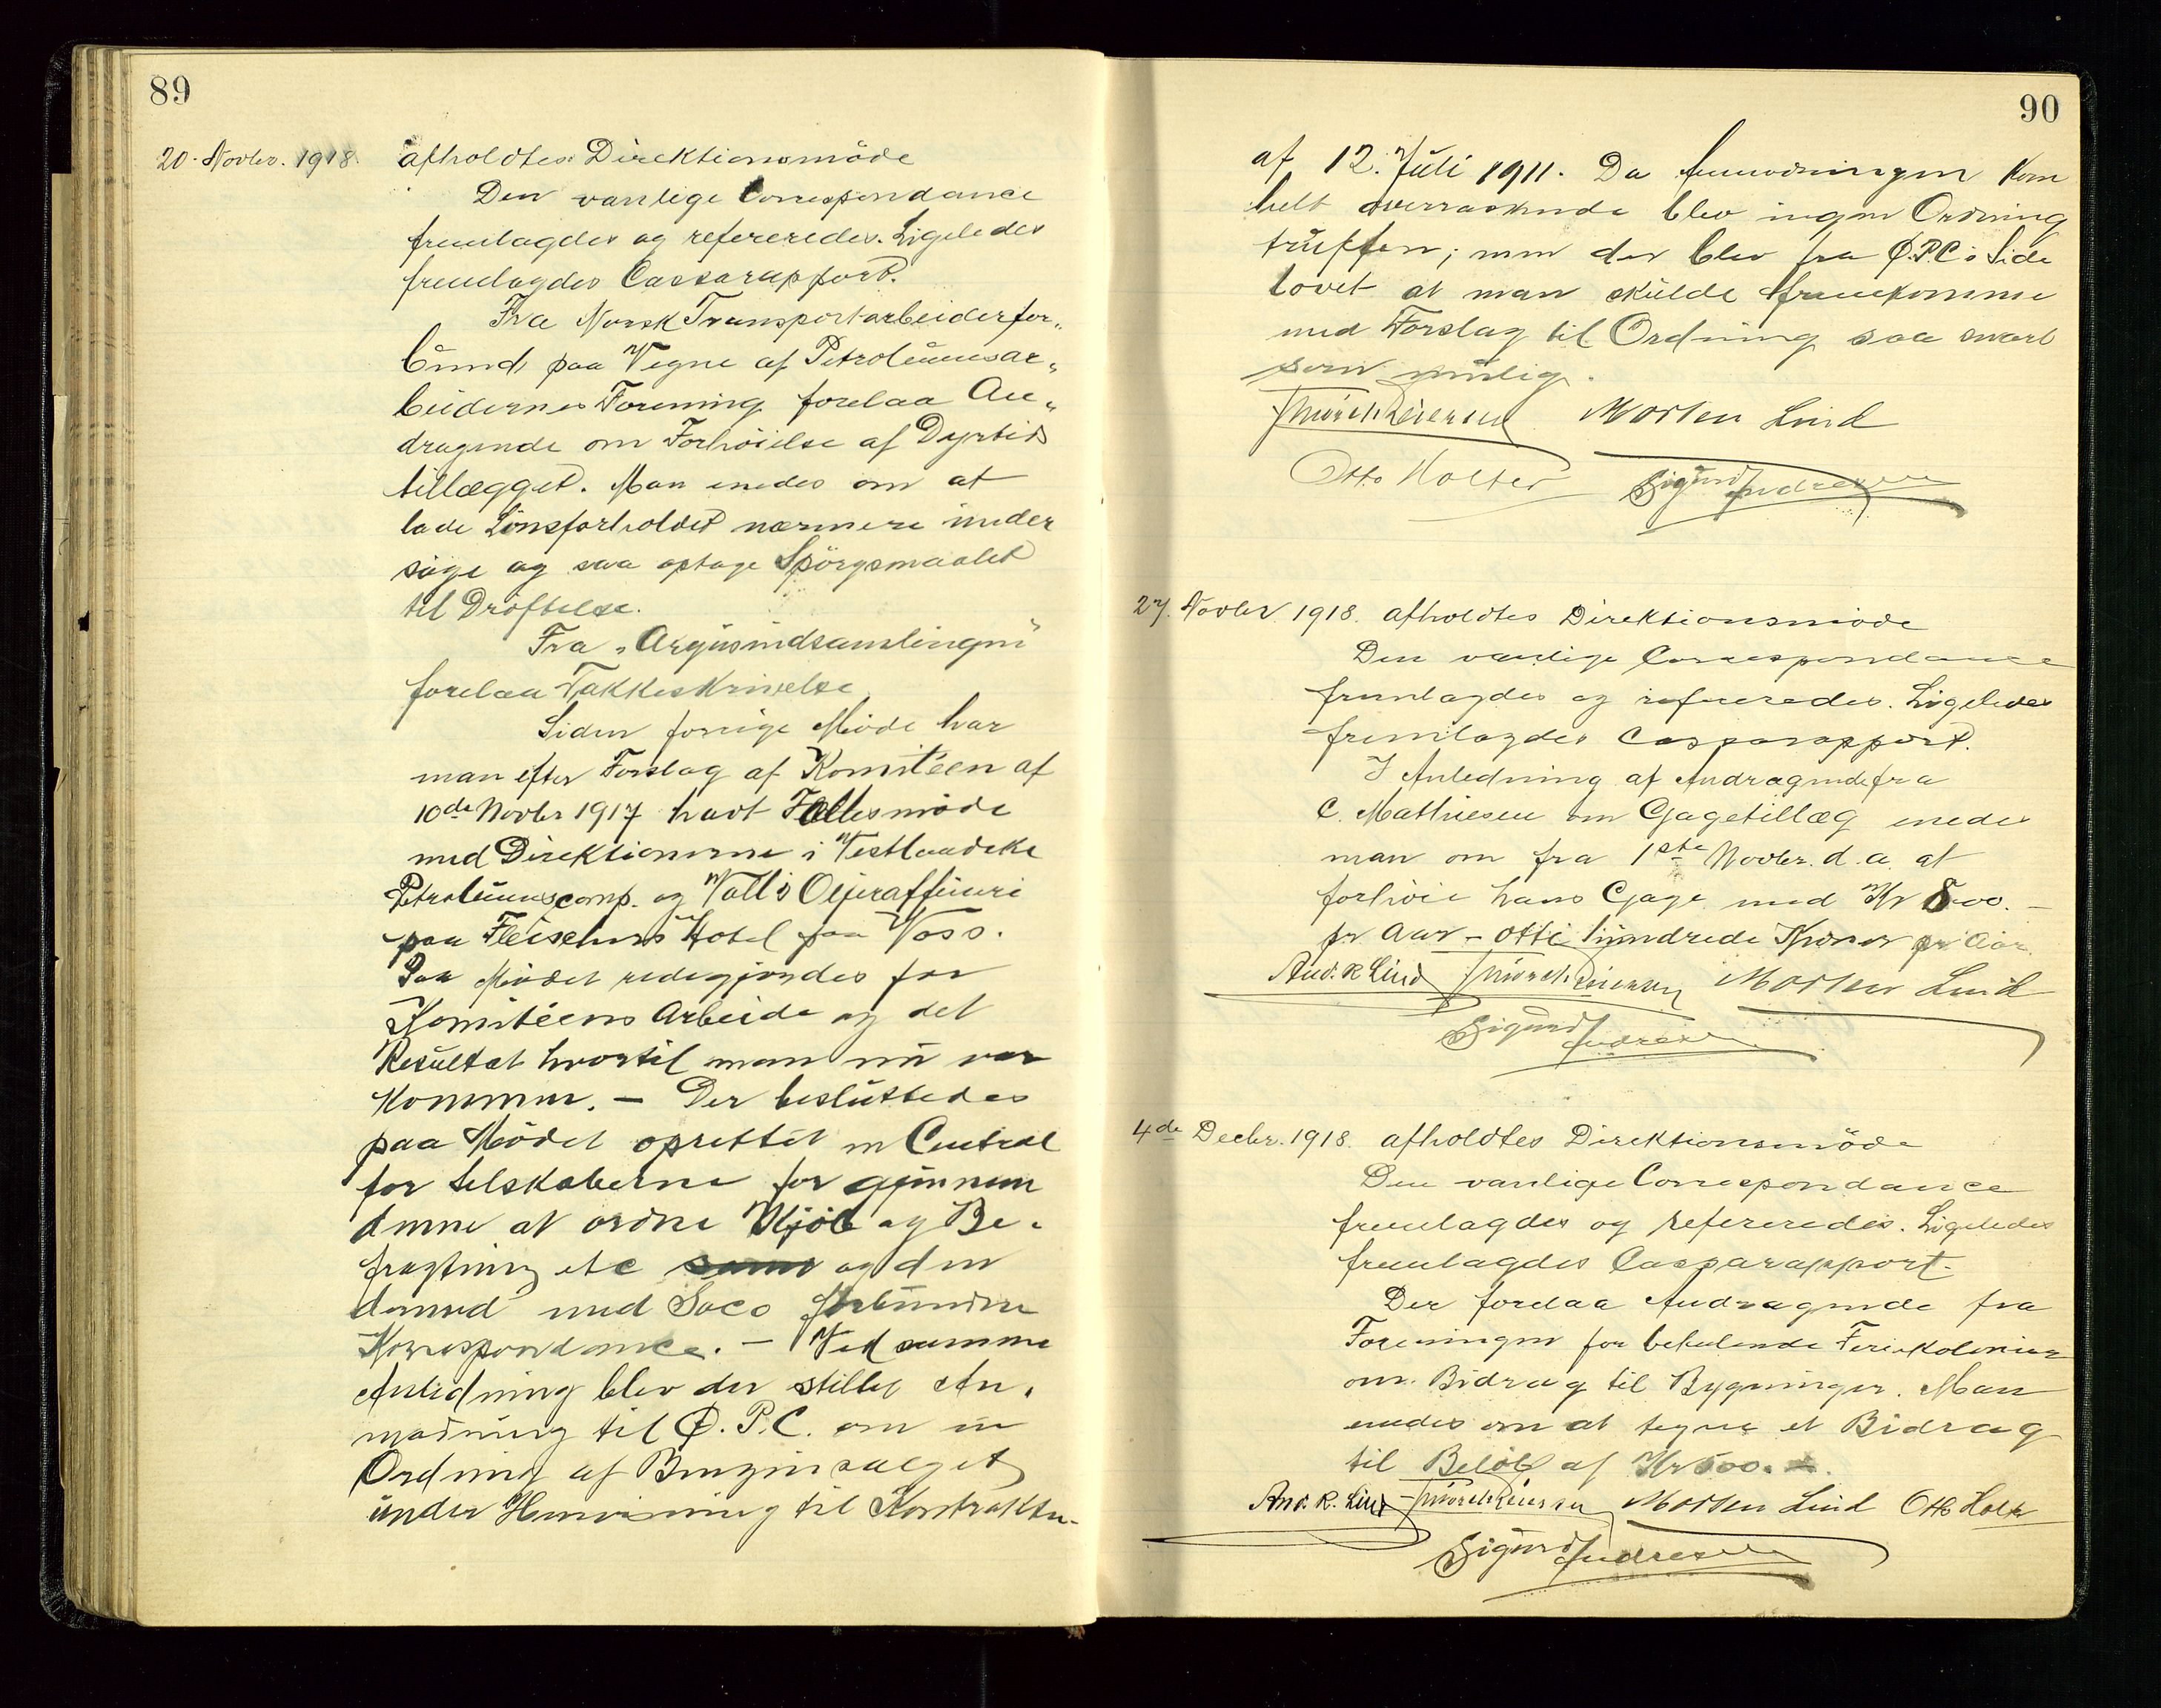 89
20. Novbr. 1918. afholdtes Direktionsmöde
Den vanlige Correspondance
fremlagdes og refereredes. Ligeledes
fremlagdes Cassarapport.
Fra Norsk Transportarbeiderfor„
bund paa Vegne af Petroleumsar„
beidernes Forening forelaa An„
dragende om Forhöielse af Dyrtids
tillægget. Man enedes om at
lade Lönsforholdet nærmere under
söge og saa optage Spörgsmaalet
til Dröftelse.
Fra „Argusindsamlingen"
forelaa Takkeskrivelse
Siden forrige Möde har
man efter Forslag af Komitéen af
10de Novbr 1917 havt Fællesmöde
med Direktionerne i Vestlandske
Petroleumscomp. og Valls Oljeraffineri
paa Fleischers Hotel paa Voss.
Paa Mödet redegjordes for
Komitéens Arbeide og det
Resultat hvortil man nu var
kommen. — Der besluttedes
paa Mödet oprettet en Central
for Selskaberne for gjennem
denne at ordne Kjöb og Be-
fragtning etc samt og den
dermed med Saco forbundne
Korrespondance. — Ved samme
Anledning blev der stillet An-
modning til Ø.P.C. om en
Ordning af Benzinsalget
under Henvisning til Kontrakten
90
af 12. Juli 1911. Da Anmodningen kom
helt overraskende blev ingen Ordning
truffen; men der blev fra Ø.P.C.s Side
lovet at man skulde fremkomme
med Forslag til Ordning saa snart
som mulig.
Morten Lind
Otto Holter Sigurd Andresen
27. Novbr 1918. afholdtes Direktionsmöde
Den vanlige Correspondance
fremlagdes og refereredes. Ligeledes
fremlagdes Cassarapport.
I Anledning af Andragende fra
C. Mathiesen om Gagetillæg enedes
man om fra 1ste Novbr. d.a. at
forhöie hans Gage med Kr 800.—
pr. Aar – otte hundrede Kroner pr Aar.
And. R. Lind Morten Lind
Sigurd Andresen
4de Decbr. 1918. afholdtes Direktionsmöde
Den vanlige Correspondance
fremlagdes og refereredes. Ligeledes
fremlagdes Cassarapport.
Der forelaa Andragende fra
Foreningen for betalende Feriekolonier
om Bidrag til Bygninger. Man
enedes om at tegne et Bidrag
til Belöb af Kr 500.
And. R. Lind Morten Lind Otto Holter
Sigurd Andresen